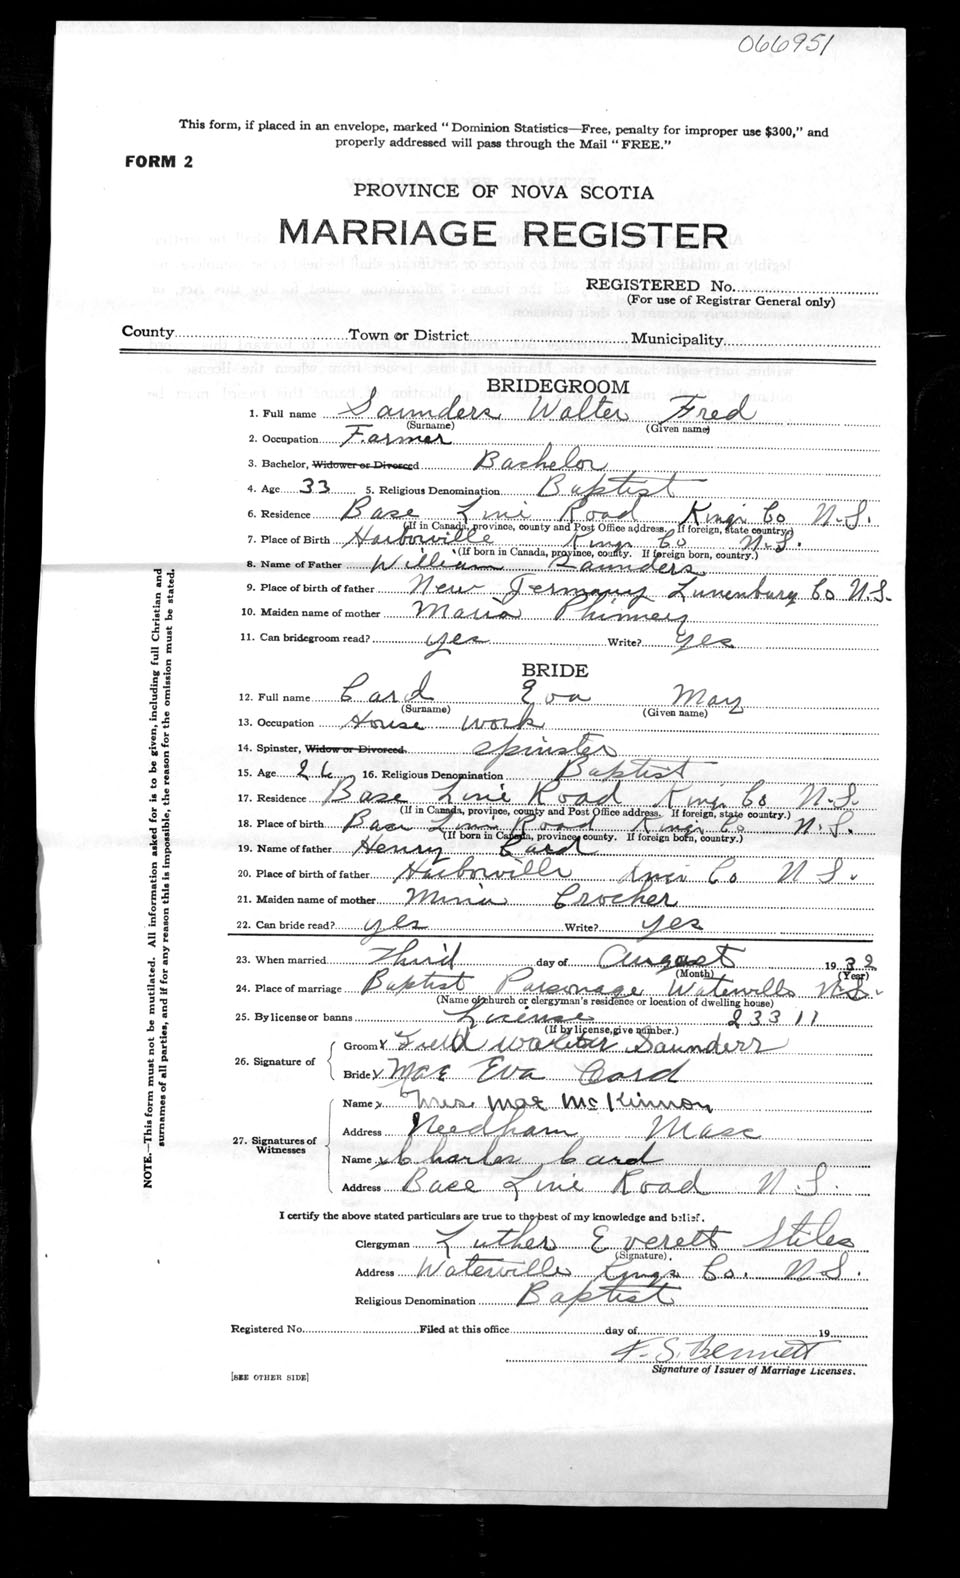 066951
This form, if placed in an envelope, marked "Dominion Statistics—Free, penalty for improper use $300," and
properly addressed will pass through the Mail "FREE."
FORM 2
PROVINCE OF NOVA SCOTIA
MARRIAGE REGISTER
REGISTERED No.
(For use of Registrar General only)
County Town or District Municipality
BRIDEGROOM
1. Full name Saunders Walter Fred
(Surname) (Given name)
2. Occupation Farmer
3. Bachelor, Widower or Divorced Bachelor
4. Age 33 5. Religious Denomination Baptist
6. Residence Base Line Road Kings Co N.S.
(If in Canada, province, county and Post Office address. If foreign, state country)
7. Place of Birth Harborville Kings Co N.S.
(If born in Canada, province, county. If foreign born, country.)
8. Name of Father William Saunders
9. Place of birth of father New Germany Lunenburg Co N.S.
10. Maiden name of mother Maria Phinney
11. Can bridegroom read? yes Write? yes
BRIDE
12. Full name Card Eva May
(Surname) (Given name)
13. Occupation House work
14. Spinster, Widow or Divorced. spinster
15. Age 26 16. Religious Denomination Baptist
17. Residence Base Line Road Kings Co N.S.
(If in Canada, province, county and Post Office address. If foreign, state country.)
18. Place of birth Base Line Road Kings Co N.S.
(If born in Canada, province, county. If foreign born, country.)
19. Name of father Henry Card
20. Place of birth of father Harborville Kings Co N.S.
21. Maiden name of mother Minie Crocher
22. Can bride read? yes Write? yes
23. When married third day of August 1932
(Month) (Year)
24. Place of marriage Baptist Parsonage Waterville N.S.
(Name of church or clergyman's residence or location of dwelling house)
25. By license or banns License 23311
(If by license, give number.)
26. Signature of
Groom x Walter Saunders
Bride x Mae Eva Card
27. Signatures of Witnesses
Name x Mrs. Mae McKinnon
Address Needham Mass
Name x Charles Card
Address Base Line Road N.S.
I certify the above stated particulars are true to the best of my knowledge and belief.
Clergyman Luther Everett Stiles
(Signature).
Address Waterville Kings Co. N.S.
Religious Denomination Baptist
Registered No. Filed at this office day of 19
F. S. Bennett
Signature of Issuer of Marriage Licenses.
[SEE OTHER SIDE]
NOTE.—This form must not be mutilated. All information asked for is to be given, including full Christian and
surnames of all parties, and if for any reason this is impossible, the reason for the omission must be stated.